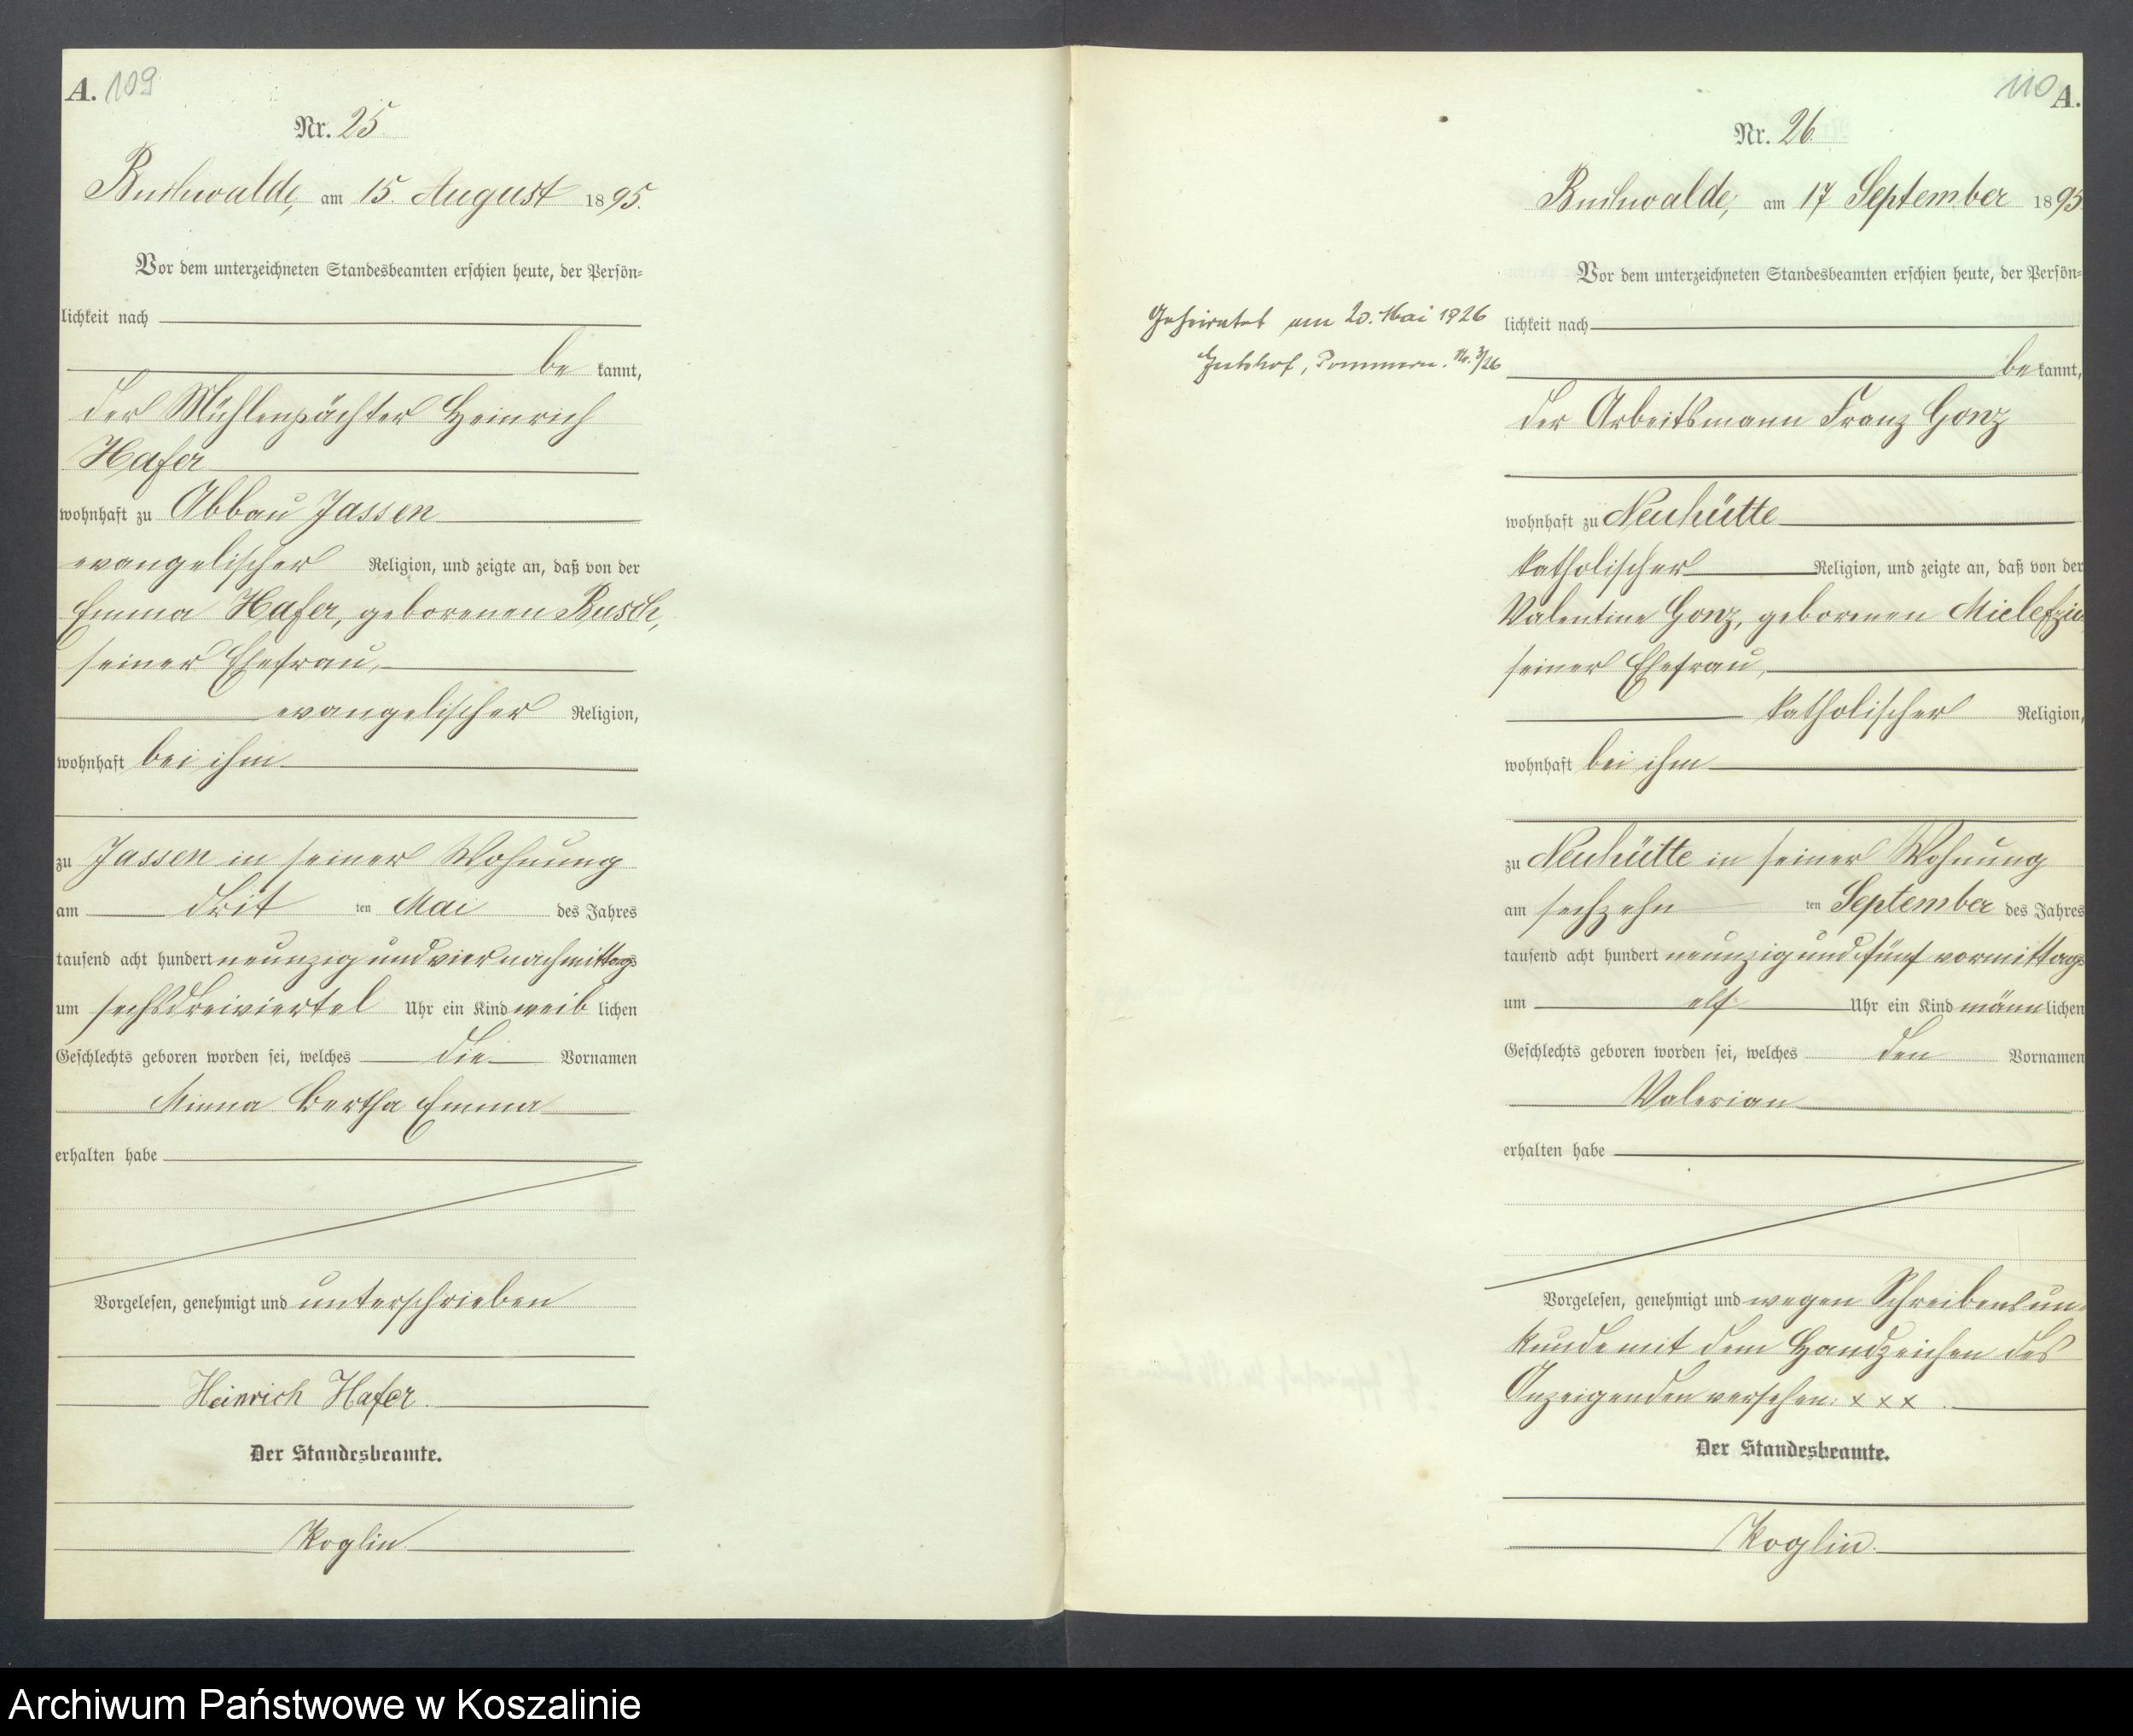 A. 109
Nr. 25
Buchwalde, am 15. August 1895.
Vor dem unterzeichneten Standesbeamten erschien heute, der Persön=
lichkeit nach
be kannt,
der Mühlenpächter Heinrich
Hafer
wohnhaft zu Abbau Jassen
evangelischer Religion, und zeigte an, daß von der
Emma Hafer, geborenen Busch,
seiner Ehefrau,
evangelischer Religion,
wohnhaft bei ihm
zu Jassen in seiner Wohnung
am drit ten Mai des Jahres
tausend acht hundert neunzig und vier nachmittags
um sechsdreiviertel Uhr ein Kind weib lichen
Geschlechts geboren worden sei, welches die Vornamen
Minna Bertha Emma
erhalten habe
Vorgelesen, genehmigt und unterschrieben
Heinrich Hafer.
Der Standesbeamte.
Koglin
110 A.
Nr. 26
Buchwalde, am 17 September 1895
Vor dem unterzeichneten Standesbeamten erschien heute, der Persön=
Geheiratet am 20. Mai 1926
Pommern. Nr. 3/26
lichkeit nach
be kannt,
der Arbeitsmann Franz Gonz
wohnhaft zu Neuhütte
katholischer Religion, und zeigte an, daß von der
Valentine Gonz, geborenen
seiner Ehefrau,
katholischer Religion,
wohnhaft bei ihm
zu Neuhütte in seiner Wohnung
am sechzehn ten September des Jahres
tausend acht hundert neunzig und fünf vormittags
um elf Uhr ein Kind männ lichen
Geschlechts geboren worden sei, welches den Vornamen
Valerian
erhalten habe
Vorgelesen, genehmigt und wegen Schreibensun-
kunde mit dem Handzeichen des
Anzeigenden versehen: x x x.
Der Standesbeamte.
Koglin.
Archiwum Państwowe w Koszalinie